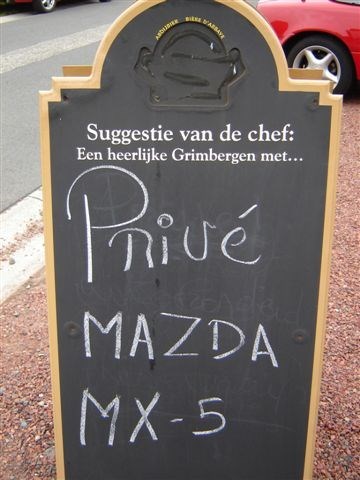 ABDIJBIER BIÈRE D'ABBAYE
Suggestie van de chef:
Een heerlijke Grimbergen met...
Privé
MAZDA
MX-5